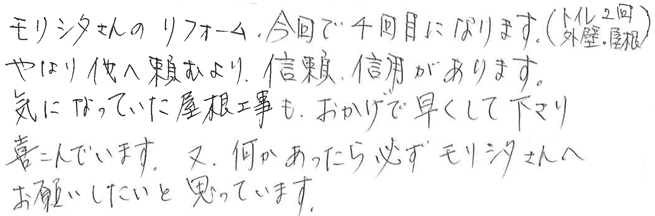 モリシタさんの リフォーム、今回で 4回目になります。(トイレ2回 外壁・屋根)
やはり他へ頼むより、信頼、信用があります。
気になっていた屋根工事も、おかげで早くして下さり
喜こんでいます。又、何かあったら必ずモリシタさんへ
お願いしたいと思っています。